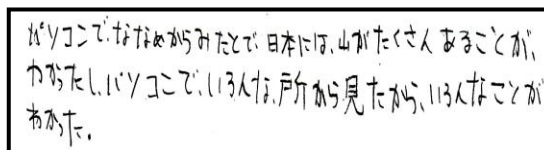 パソコンで、ななめからみたとで、日本には、山がたくさんあることが、
わかったし、パソコンで、いろんな、所から見たから、いろんなことが
わかった。